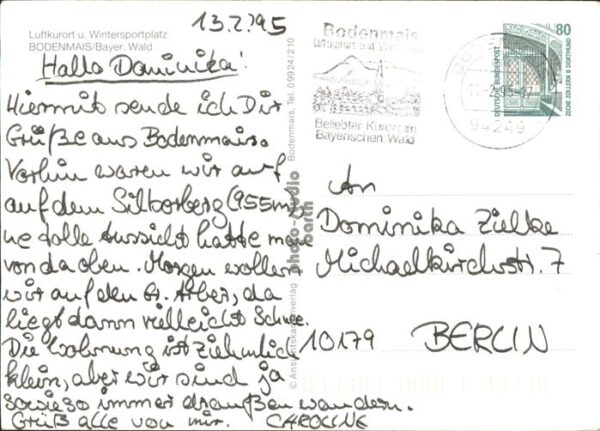 13.2.'95
Luftkurort u. Wintersportplatz
BODENMAIS/Bayer. Wald
Hallo Dominika!
Hiermit sende ich Dir
Grüße aus Bodenmais.
Vorhin waren wir auf
auf dem Silberberg (955m),
ne tolle Aussicht hatte man
von da oben. Morgen wollen
wir auf den Gr. Arber, da
liegt dann vielleicht Schnee.
Die Wohnung ist ziehmlich
klein, aber wir sind ja
sowieso immer draußen wandern.
Grüß alle von mir. CAROLINE
© Ansichtskartenverlag photo-studio barth Bodenmais, Tel. 09924/210
Bodenmais
Luftkurort und
Beliebter Kurort im
Bayerischen Wald
94249
80
DEUTSCHE BUNDESPOST
ZECHE ZOLLERN II DORTMUND
An
Dominika Zielke
Michaelkirchstr. 7
10179 BERLIN